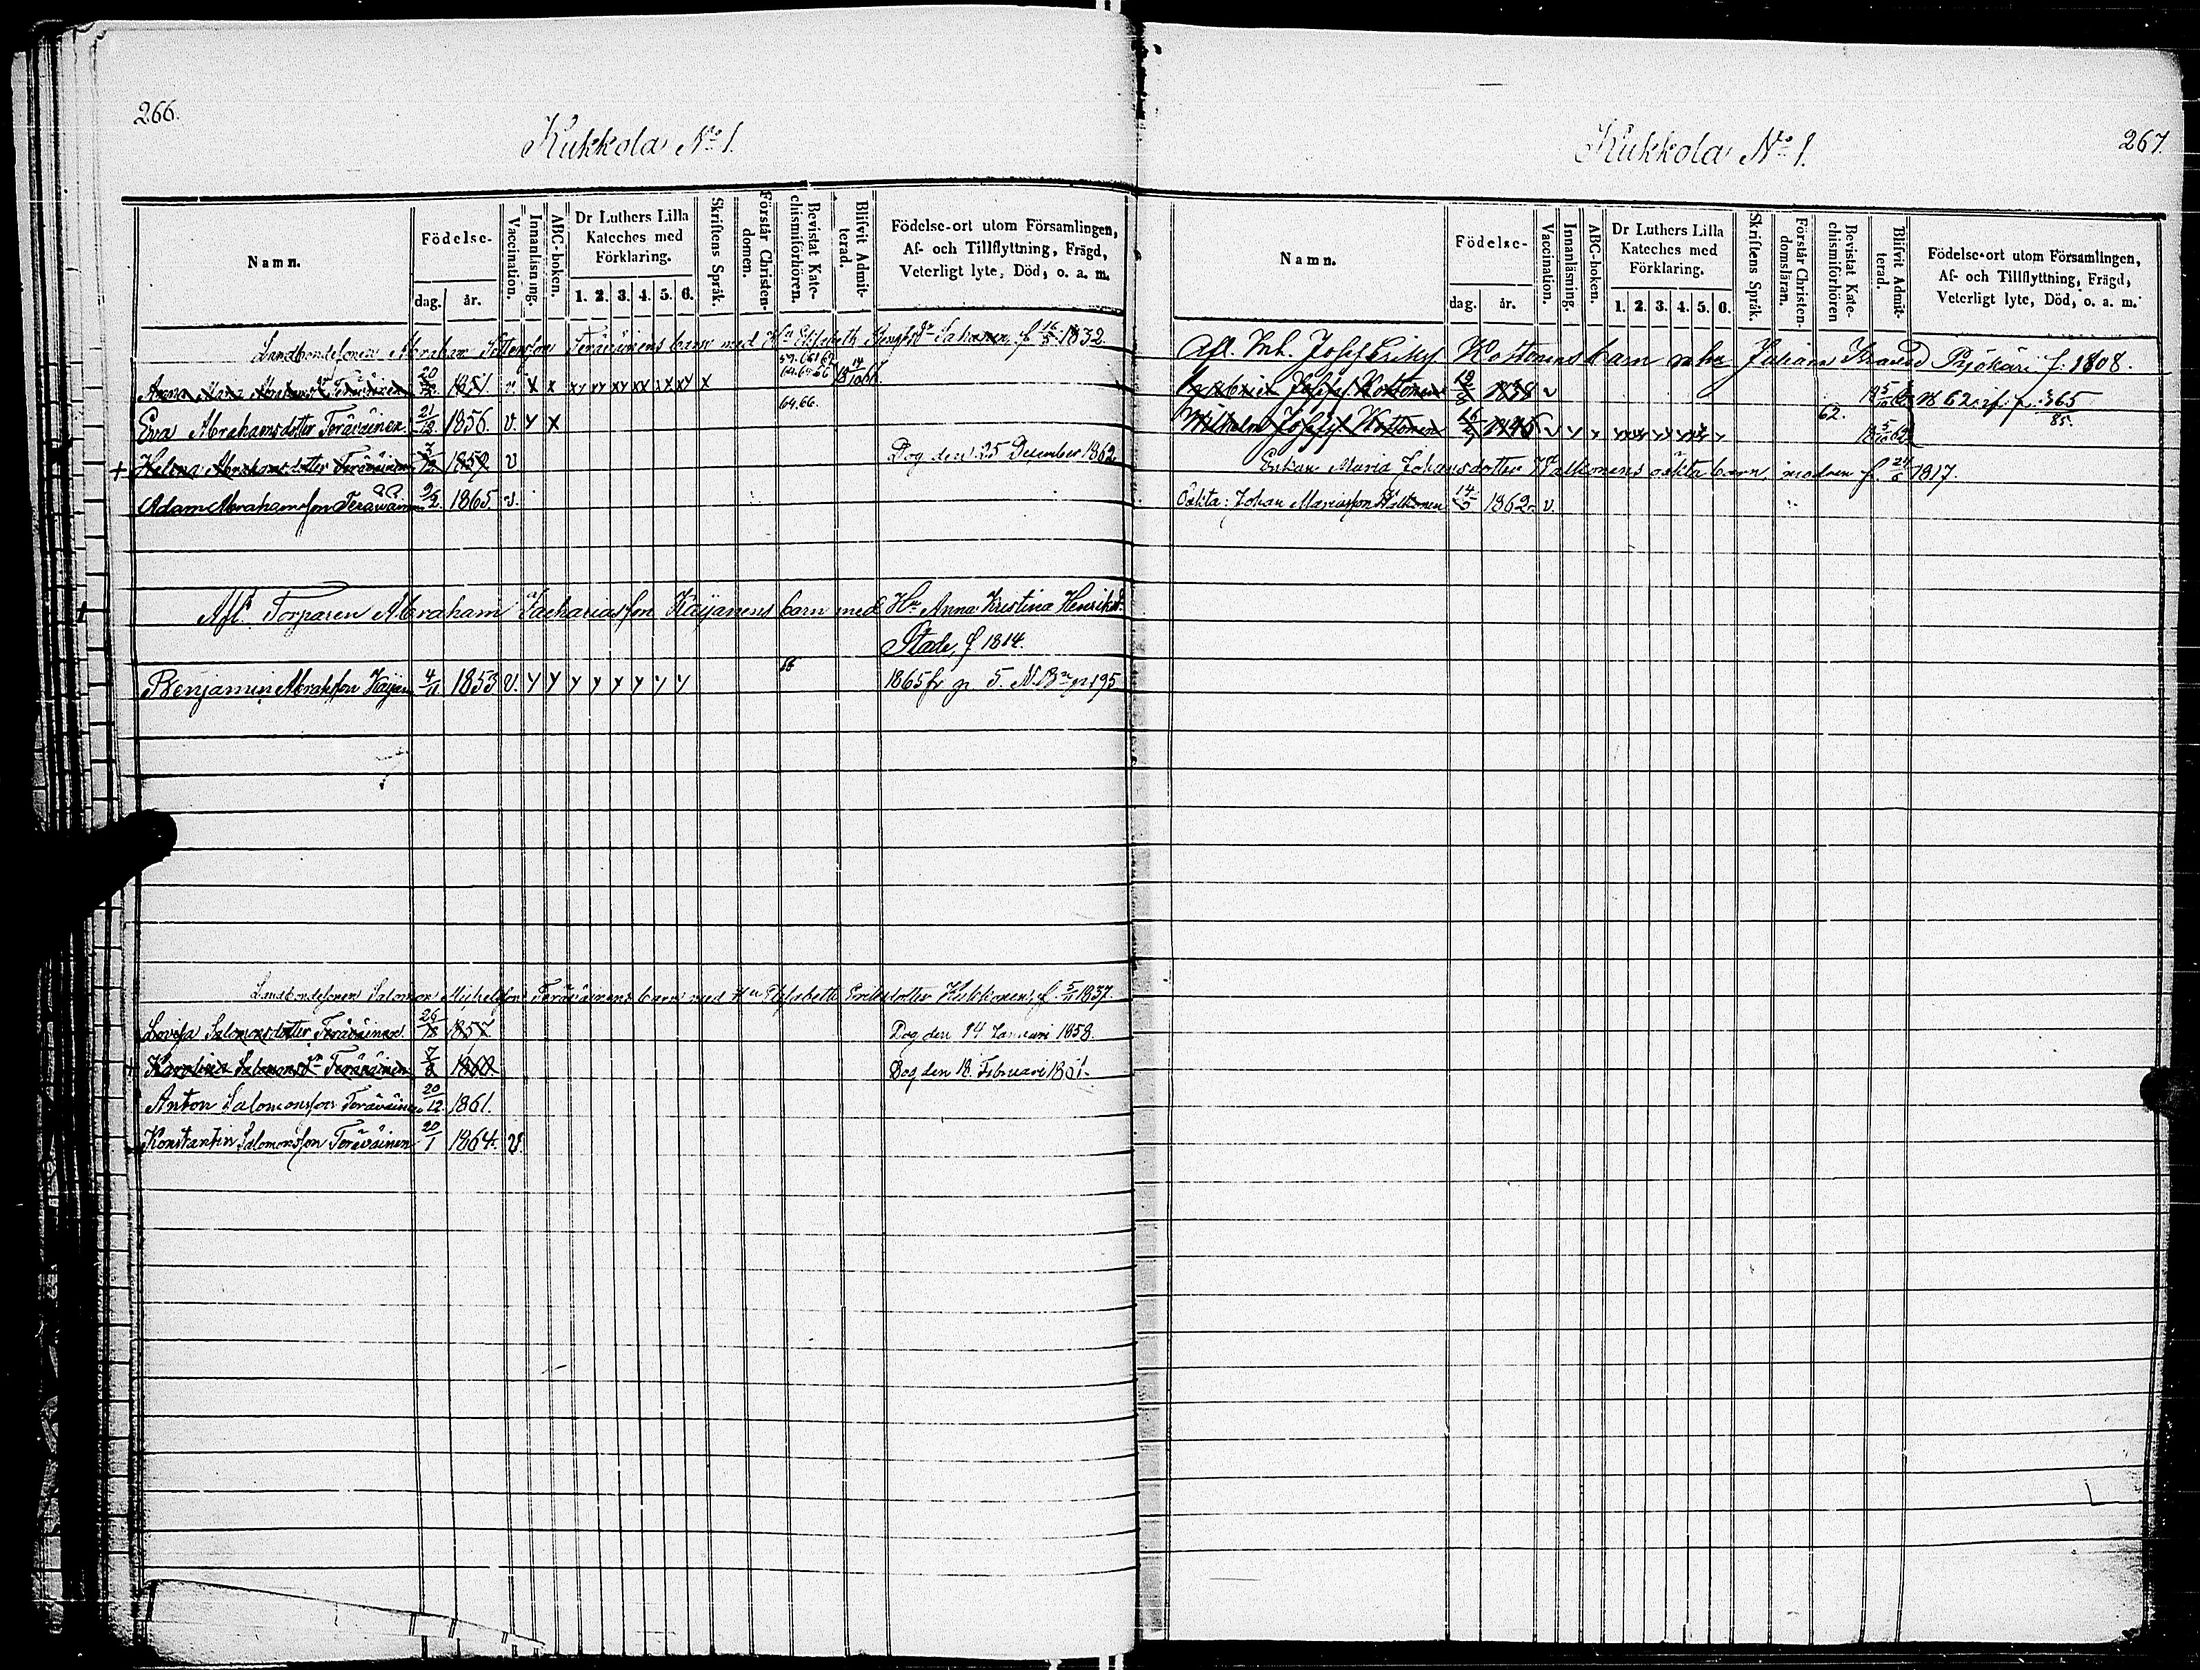 266.
Kukkola No 1.
Namn.
Födelse-
dag.
år.
Vaccination.
Innanläsning.
ABC-boken.
Dr Luthers Lilla
Kateches med
Förklaring.
1. 2. 3. 4. 5. 6.
Skriftens Språk.
Förstår Christen-
domen.
Bevistat Kate-
chismiförhören.
Blifvit Admit-
terad.
Födelse-ort utom Församlingen,
Af- och Tillflyttning, Frägd,
Veterligt lyte, Död, o. a. m.
Landbondesonen Abraham Teräväinens barn med Hu Elisabeth f. 1832.
Anna Maria Abrahamsdr Teräväinen 20 1851 v. x x xy xy xy xx xx xy x
64.66.
Eva Abrahamsdotter Teräväinen 21/12 1856. v. y x
+ Helena Abrahamsdotter Teräväinen 1859 v Dog den 25 December 1862
Adam Abrahamsson Teräväinen 9/2 1865. v.
Afl. Torparen Abraham Zachariasson Kaijanens barn med Hu Anna Kristina Henriksd.
Stade, f 1814.
Benjamin Abrahsson Kaijan 4/11 1853 V. y y y y y y y y 1865 fr p. 5. N. Bn p. 195
Landbondesonen Salomon Michelsson Teräväinens barn med Hu Elisabetta Eriksdotter Kukkonen, f. 5/11 1837.
Lovisa Salomonsdotter Teräväinen 26 1857 Dog den 14 Januari 1858.
+ Karolina Salomonsdr Teräväinen 7 1860 Dog den 18. Februari 1861.
Anton Salomonsson Teräväinen 20/12 1861.
Konstantin Salomonsson Teräväinen 20/1 1864. v.
267.
Kukkola No 1.
Namn.
Födelse-
dag.
år.
Vaccination.
Innanläsning.
ABC-boken.
Dr Luthers Lilla
Kateches med
Förklaring.
1. 2. 3. 4. 5. 6.
Skriftens Språk.
Förstår Christen-
domsläran.
Bevistat Kate-
chismiförhören
Blifvit Admit-
terad.
Födelse-ort utom Församlingen,
Af- och Tillflyttning, Frägd,
Veterligt lyte, Död, o. a. m.
Afl. Inh. Josef Kottonens barn m hu f. 1808.
Josefss Kottonen 1838 v
Wilhelm Josefss Kottonen 16 1845 v 62.
Enkan Maria Johansdotter Walkonens oäkta barn, modren f. 24 1817.
Oäkta: Johan Mariasson Walkonen 14/5 1862. v.